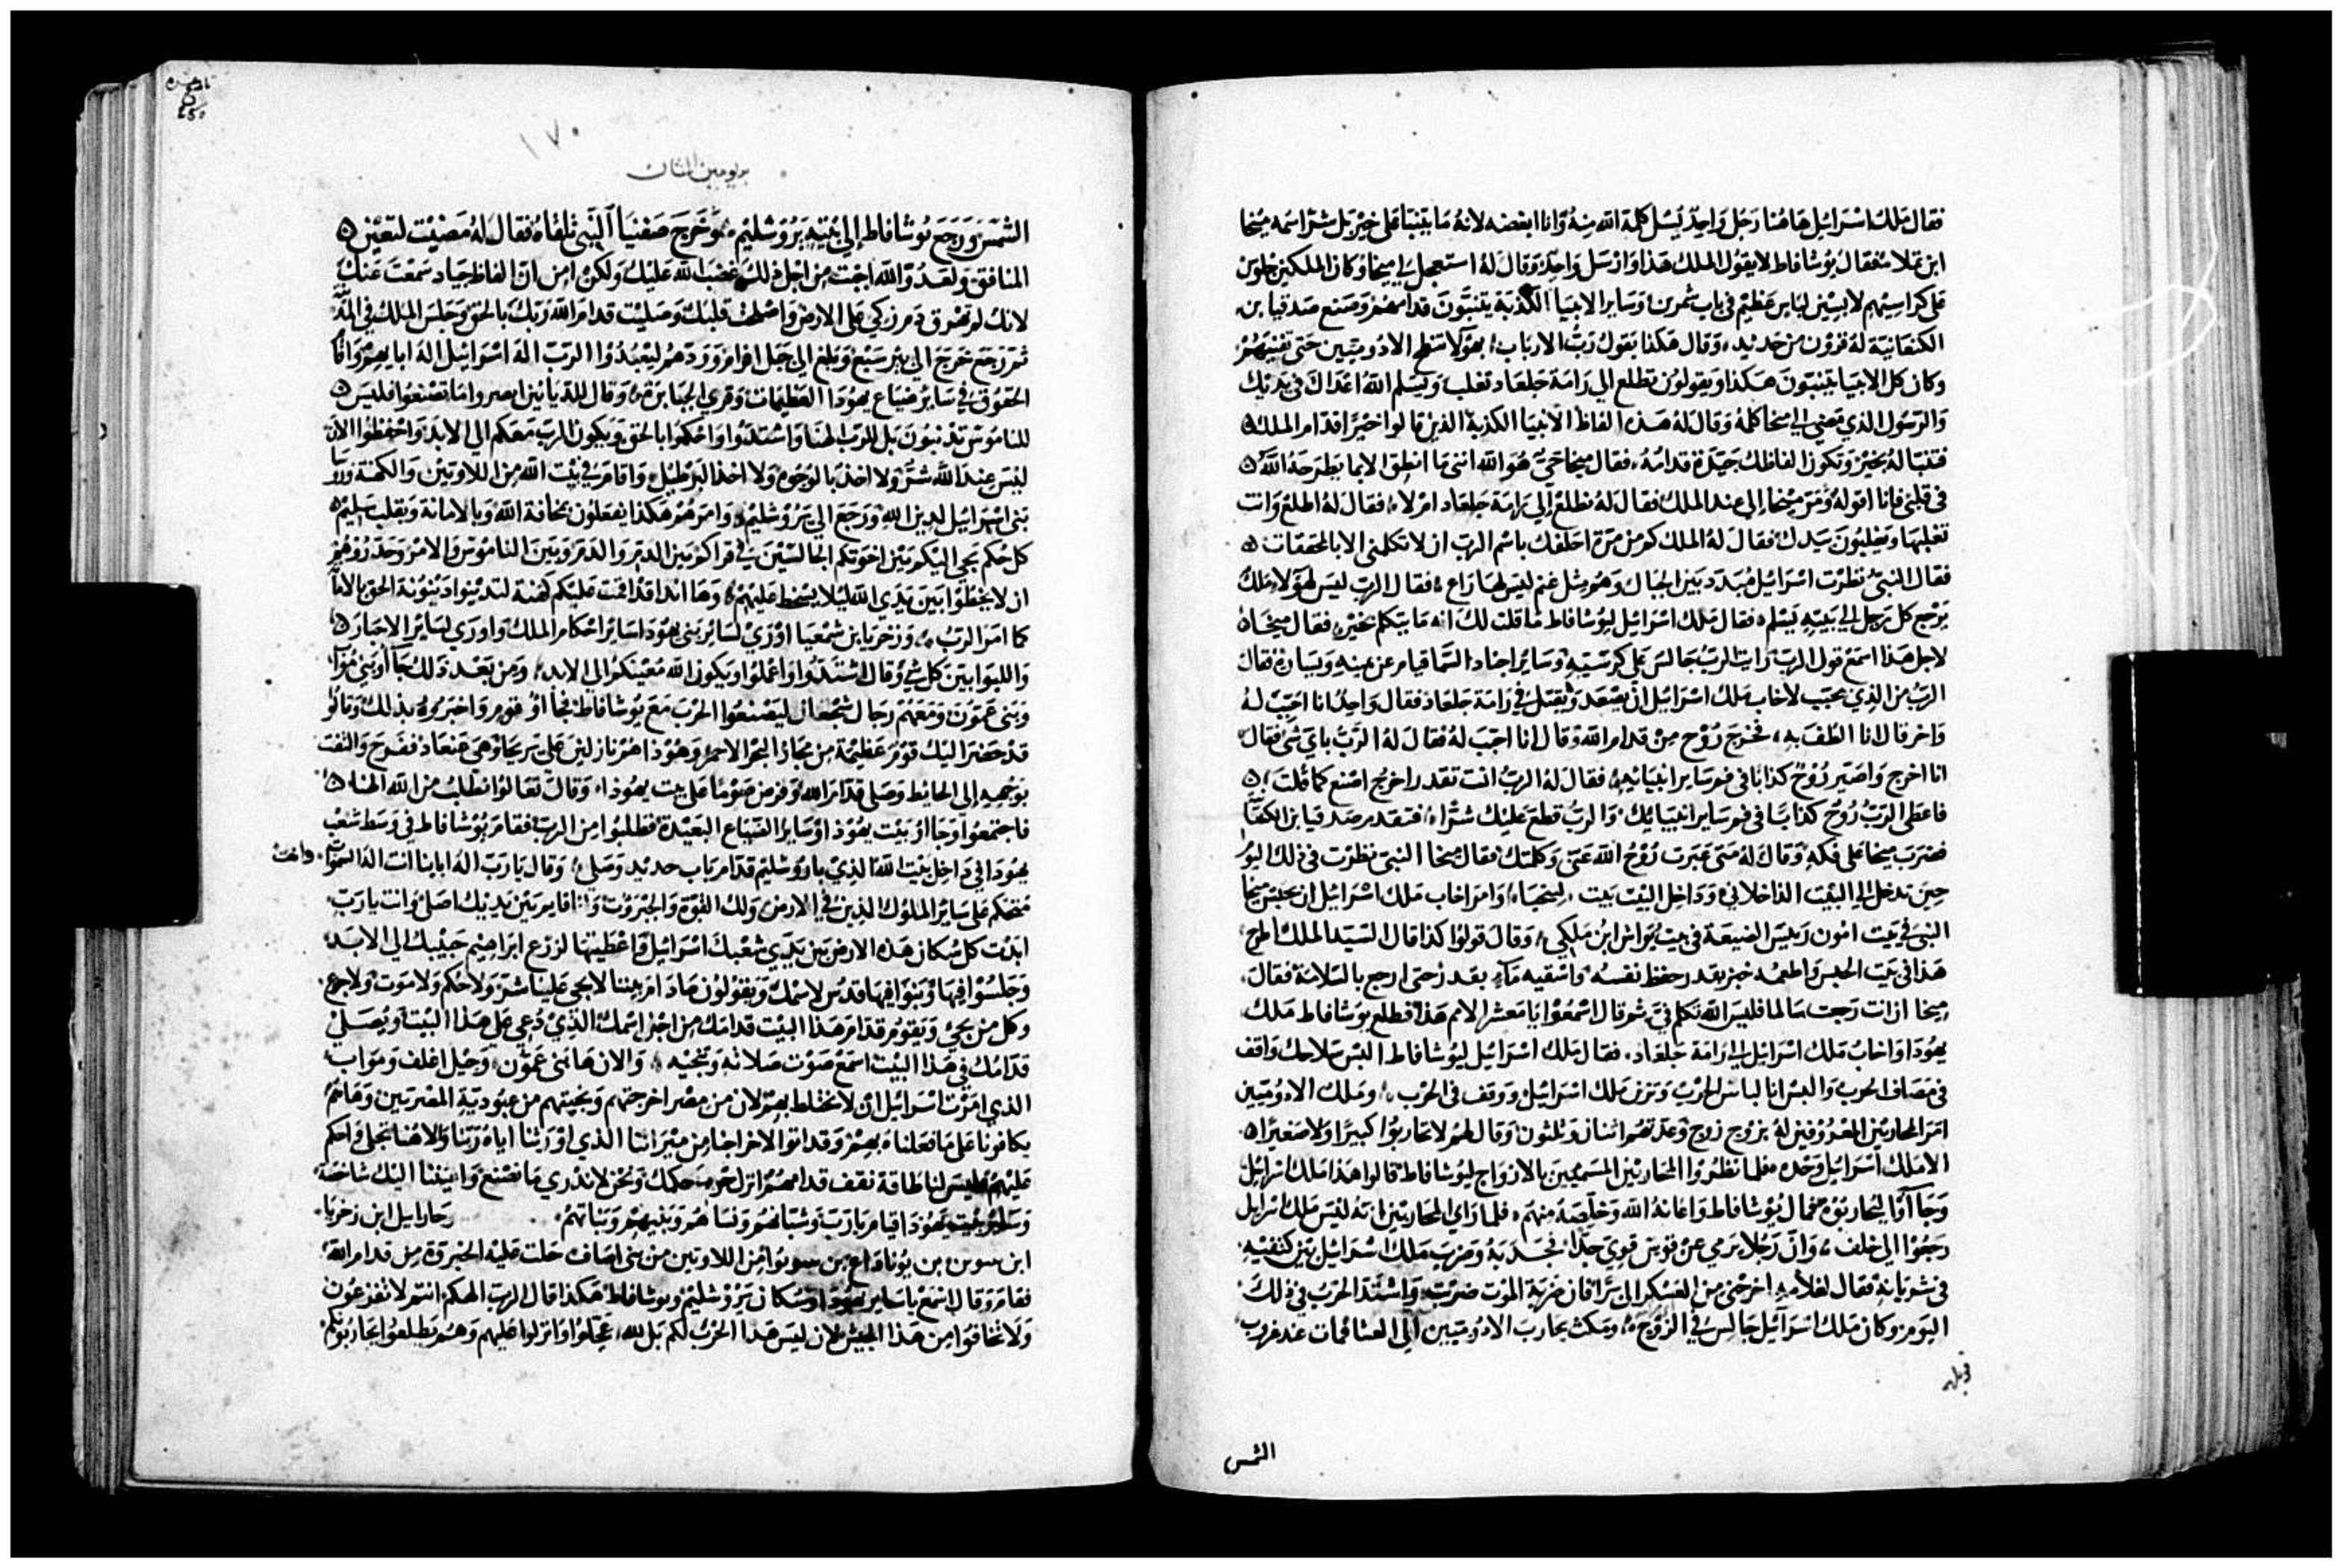 فقال ملك اسرائيل هاهنا رجل واحد يسل كلمة الله منه وانا ابغضه لانه ما يتنبا على خير بل شر اسمه ميخا
ابن يملا فقال يوشافاط لا يقول الملك هذا وارسل واحد وقال له استعجل الي ميخا وكان الملكين جلوس
على كراسيهم لابسين لباس عظيم في باب شمرين وساير الانبيا الكذبة يتنبون قدامهم وصنع صدقيا بن
الكنعانية له قرون من حديد وقال هكذا يقول رب الارباب بهولا تنطح الادوميين حتى تفنيهم
وكان كل الانبيا يتنبون هكذا ويقولون تطلع الي رامة جلعاد تغلب ويسلم الله اعداك في يديك
والرسول الذي مضى الي ميخا كلمه وقال له هذه الفاظ الانبيا الكذبة الذين قالوا خيرا قدام الملك
فتنبا له بخير وتكون الفاظك جيدة قدامه فقال ميخا حي هو الله انني ما انطق الا بما يطرحه الله
في قلبي فانا اقوله ومر ميخا الى عند الملك فقال له نطلع الي رامة جلعاد ام لا فقال له اطلع وانت
تغلبها ويغلبون بيدك فقال له الملك كم من مرة احلفك باسم الرب ان لا تكلمني الا بالمحققات
فقال النبي نظرت اسرائيل مبدد بين الجبال وهو مثل غنم ليس لها راع فقال الرب ليس لهولا ملك
يرجع كل رجل الي بيته بسلم فقال ملك اسرائيل ليوشافاط ما قلت لك انه ما يتكلم بخير فقال ميخاه
لاجل هذا اسمع قول الرب رايت الرب جالس على كرسيه وساير اجناد السما قيام عن يمينه ويساره فقال
الرب من الذي يجيب لاخاب ملك اسرائيل ان يصعد ويقتل في رامة جلعاد فقال واحد انا اجيب له
واخر قال انا الطف به فخرج روح من قدام الله وقال انا اجيب له فقال له الرب باي شي فقال
انا اخرج واصير روح كذابا في فم ساير انبيائه فقال له الرب انت تقدر اخرج اصنع كما قلت
فاعطى الرب روح كذابا في فم ساير انبيائك والرب قطع عليك شرا فتقدم صدقيا بن الكنعا
ضرب ميخا على فكه وقال له متى عبرت روح الله عني وكلمتك فقال ميخا النبي نظرت في ذلك اليو
حين تدخل الي البيت الداخلاني وداخل البيت بيت وامر اخاب ملك اسرائيل ان يحبس ميخا
النبي في بيت امون رييس الضيعة في بيت يواش ابن ملكي وقال قولوا كذا قال السيد الملك اطرح
هذا في بيت الحبس واطعمه خبز بقدر حفظ نفسه واسقيه ماء بقدر حتى ارجع بالسلامة فقال
ميخا ان انت رجعت سالما فليس الله تكلم في ثم قال اسمعوا يا معشر الامم هذا فطلع يوشافاط ملك
يهودا واخاب ملك اسرائيل الي رامة جلعاد فقال ملك اسرائيل ليوشافاط البس سلاحك واقف
في مصاف الحرب والبس انا لباس الحرب وتزين ملك اسرائيل ووقف في الحرب وملك الادوميين
امر المحاربين المعروفين له بزوج زوج وعدتهم اثنان وثلثون وقال لهم لا تحاربوا كبيرا ولا صغيرا
الا ملك اسرائيل وحده فلما نظروا المحاربين المسميين بالازواج ليوشافاط قالوا هذا ملك اسرائيل
وجاوا ليحاربوه فقال يوشافاط واعانه الله وخلصه منهم فلما راي المحاربين انه ليس ملك اسرائيل
رجعوا الى خلف وان رجلا يرمي عن قوس قوي جدا فجدبه وضرب ملك اسرائيل بين كتفيه
في شريانه فقال لغلامه اخرجني من العسكر الى برا فان ضربة الموت ضربت واشتد الحرب في ذلك
اليوم وكان ملك اسرائيل جالس في الزوج ومكث يحارب الادوميين الي العشا فمات عند غروب
قوبل
الشمس
١٧٠
الشمس ورجع يوشافاط الي بيته يروشليم وخرج صفنيا النبي تلقاه فقال له مضيت لتعين
المنافق ولعدو الله احبت من اجل ذلك غضب الله عليك ولكن من ان الفاظ جياد سمعت عنك
لانك لم تهرق دم زكي على الارض واصلحت قلبك وصليت قدام الله ربك بالحق وجلس الملك في
ثم رجع خرج الى بير سبع وبلغ الى جبل افرام وردهم ليعبدوا الرب اله اسرائيل اله ابايهم واقا
الحقوق في ساير ضياع يهودا العظيمات وقري الجبابرة وقال للديانين ابصروا ما تصنعوا فليس
للناموس تدنون بل للرب الهنا واشتدوا واحكموا بالحق ويكون الرب معكم الي الابد واحفظوا الان
ليس عند الله شر ولا اخذ بالوجوه ولا اخذ البرطيل واقام في بيت الله من اللاويين والكهنة وروسا
بني اسرائيل لدين الله ورجع الي يروشليم وامرهم هكذا يفعلون بمخافة الله وبالامانة وبقلب سليم
كل حكم يجي اليكم بين اخوتكم الجالسين في قراكم بين الدم والدم وبين الناموس والامر وحذروهم
ان لا يخطوا بين يدي الله ليلا يسخط عليهم وها انذا قد اقمت عليكم كهنة لتدينوا دينونة الحق بالاما
كما امر الرب وزخريا بن شمعيا اوري لساير بني يهودا ساير احكام الملك واوري لساير الاحبار
واللوا بين كل شي وقال اشتدوا واعملوا ويكون الله معينكم الى الابد ومن بعد ذلك جا اوبني مواب
وبني عمون ومعهم رجال شجعان ليصنعوا الحرب مع يوشافاط فجا اوقوم واخبروه بذلك وقالوا
قد حضر اليك قوم عظيمة من مجاز البحر الاحمر وهوذا هم نازلين على يريحا وهي ففزع والتفت
بوجهه الي الحائط وصلى قدام الله وفرض صوما على بيت يهودا وقال تعالوا نطلب من الله الهنا
فاجتمعوا وجاوا بيت يهودا وساير الضياع البعيدة فطلبوا من الرب فقام يوشافاط في وسط شعب
يهودا في داخل بيت الله الذي باروشليم قدام باب حديد وصلى وقال يا رب اله ابايا انت اله السموات وانت
تحكم على ساير الملوك الذين في الارض ولك القوة والجبروت وانا قايم بين يديك اصلي وانت يا رب
ابدت كل سكان هذه الارض من يدي شعبك اسرائيل واعطيتها لزرع ابراهيم حبيبك الي الابد
وجلسوا فيها وبنوا فيها قدس لاسمك ويقولون مادام بيننا لا يجي علينا شر ولا حكم ولا موت ولا جوع
وكل من يجي ويقوم قدام هذا البيت قدامك من اجل اسمك الذي دعي على هذا البيت ويصلي
قدامك في هذا البيت اسمع صوت صلاته وتنجيه والان ها بني عمون وجبل اغلف ومواب
الذي امرت اسرائيل ان لا تختلط بهم لان من مصر اخرجتهم ونجيتهم من عبودية المصريين وهاهم
يكافونا على ما فعلناه بهم وقد اتوا لاخراجنا من ميراثنا الذي اورثتنا اياه ربنا والاهنا تجلى واحكم
عليهم فليس لنا طاقة نقف قدامهم انزل حكمك ونحن لا ندري ما نصنع واعيننا اليك شاخصة
وساير بيت يهودا قيام يا رب وشبانهم ونساهم وبنيهم وبناتهم ابن زخريا
ابن بن يونا من اللاويين من بني اصاف حلت عليه الخبرة من قدام الله
فقام وقال اسمع يا ساير يهودا وسكان يروشليم ويوشافاط هكذا قال الرب الهكم انتم لا تفزعون
ولا تخافوا من هذا الجيش لان ليس هذا الحرب لكم بل لله عجلوا وانزلوا عليهم وهم يطلعوا يحاربوكم